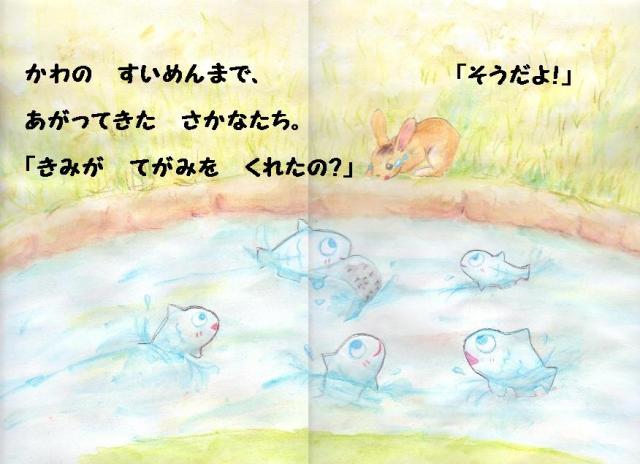 かわの　すいめんまで、
あがってきた　さかなたち。
「きみが　てがみを　くれたの？」
「そうだよ！」